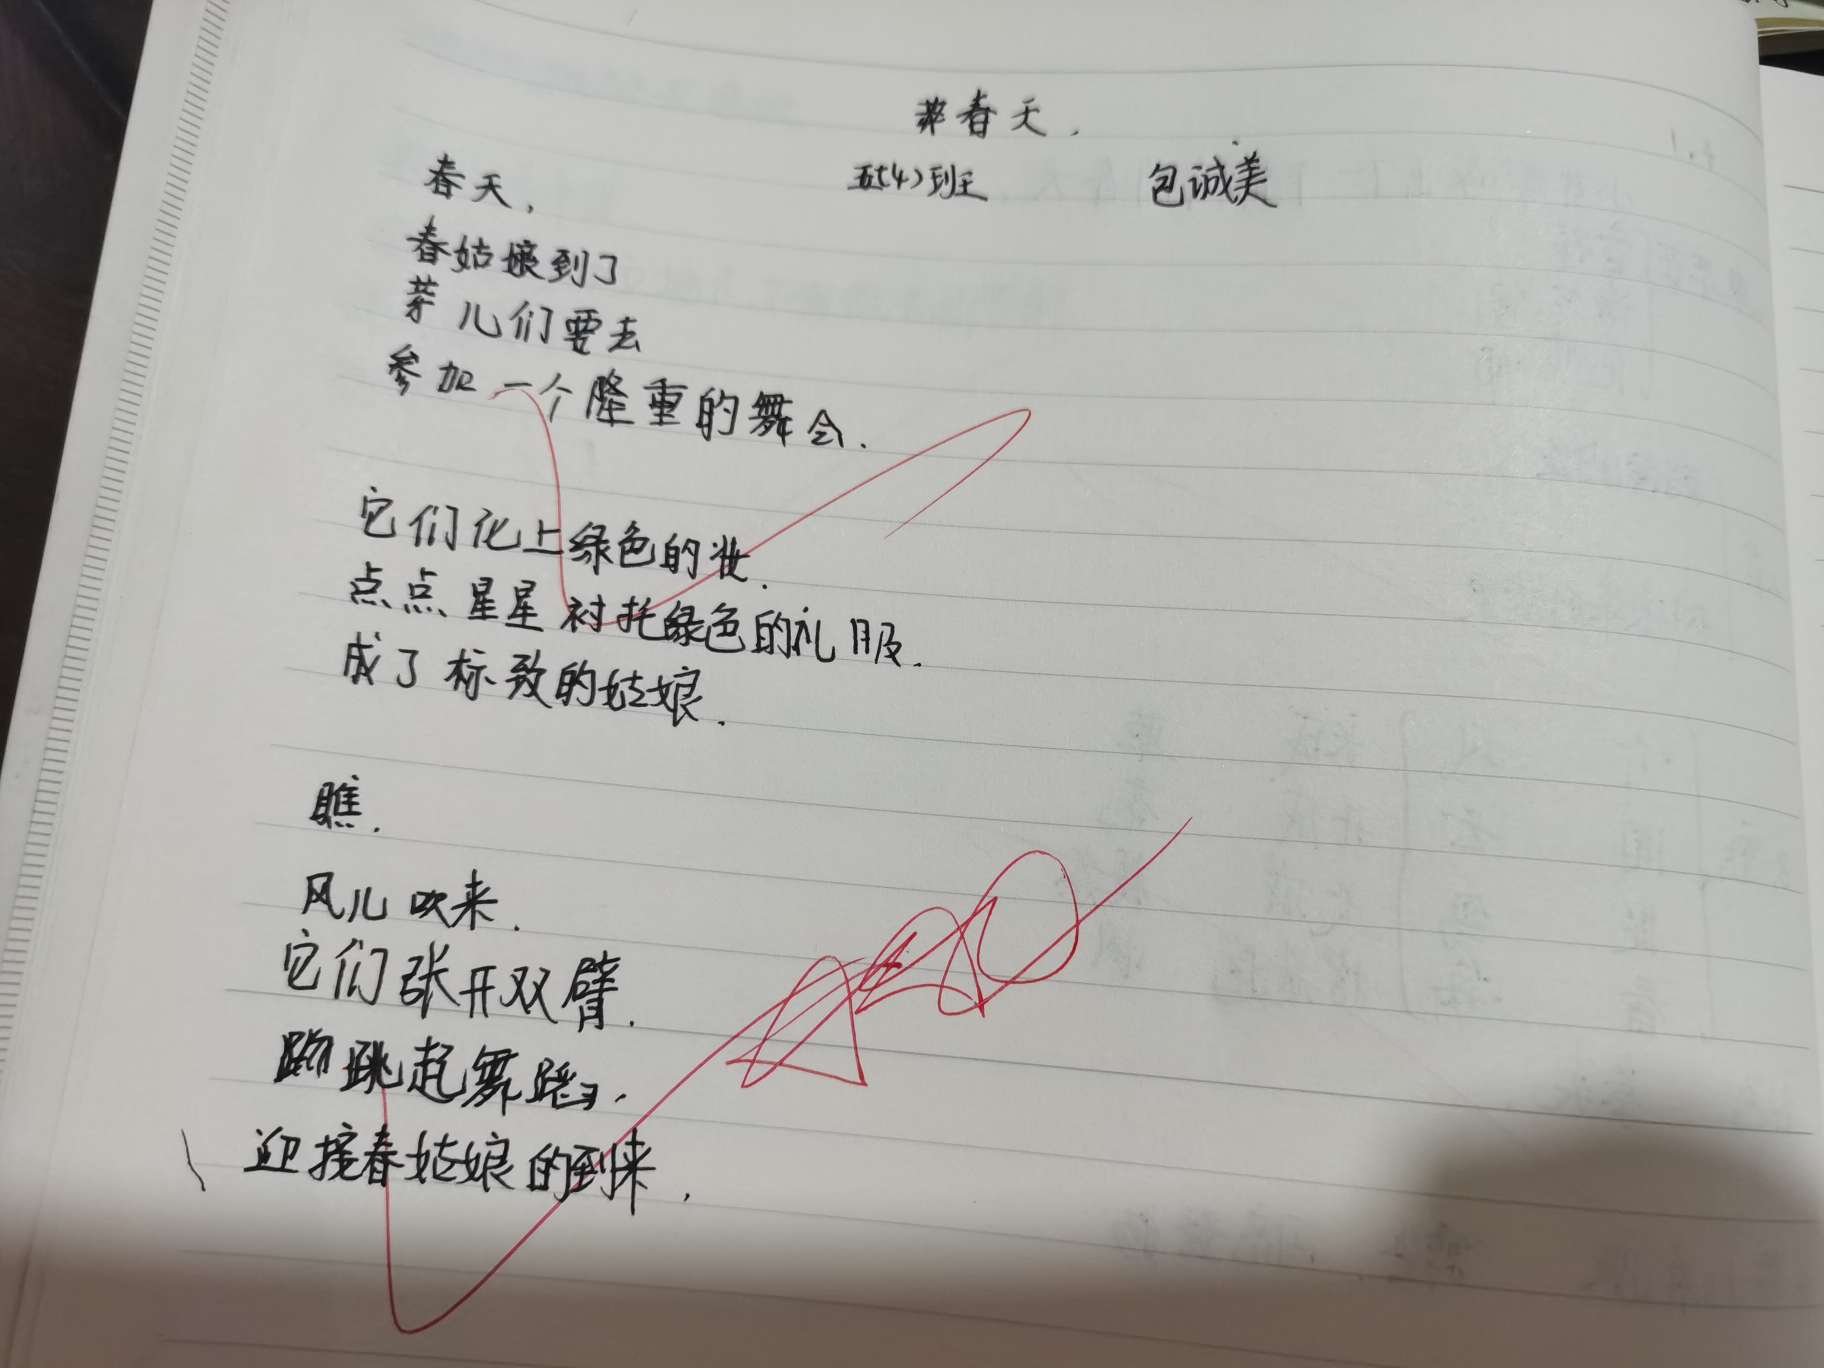 芽春天.
五(4)班 包诚美
春天,
春姑娘到了
芽儿们要去
参加一个隆重的舞会.
它们化上绿色的妆.
点点星星衬托绿色的礼服.
成了标致的姑娘.
瞧.
风儿吹来.
它们张开双臂.
跳起舞蹈,
迎接春姑娘的到来.